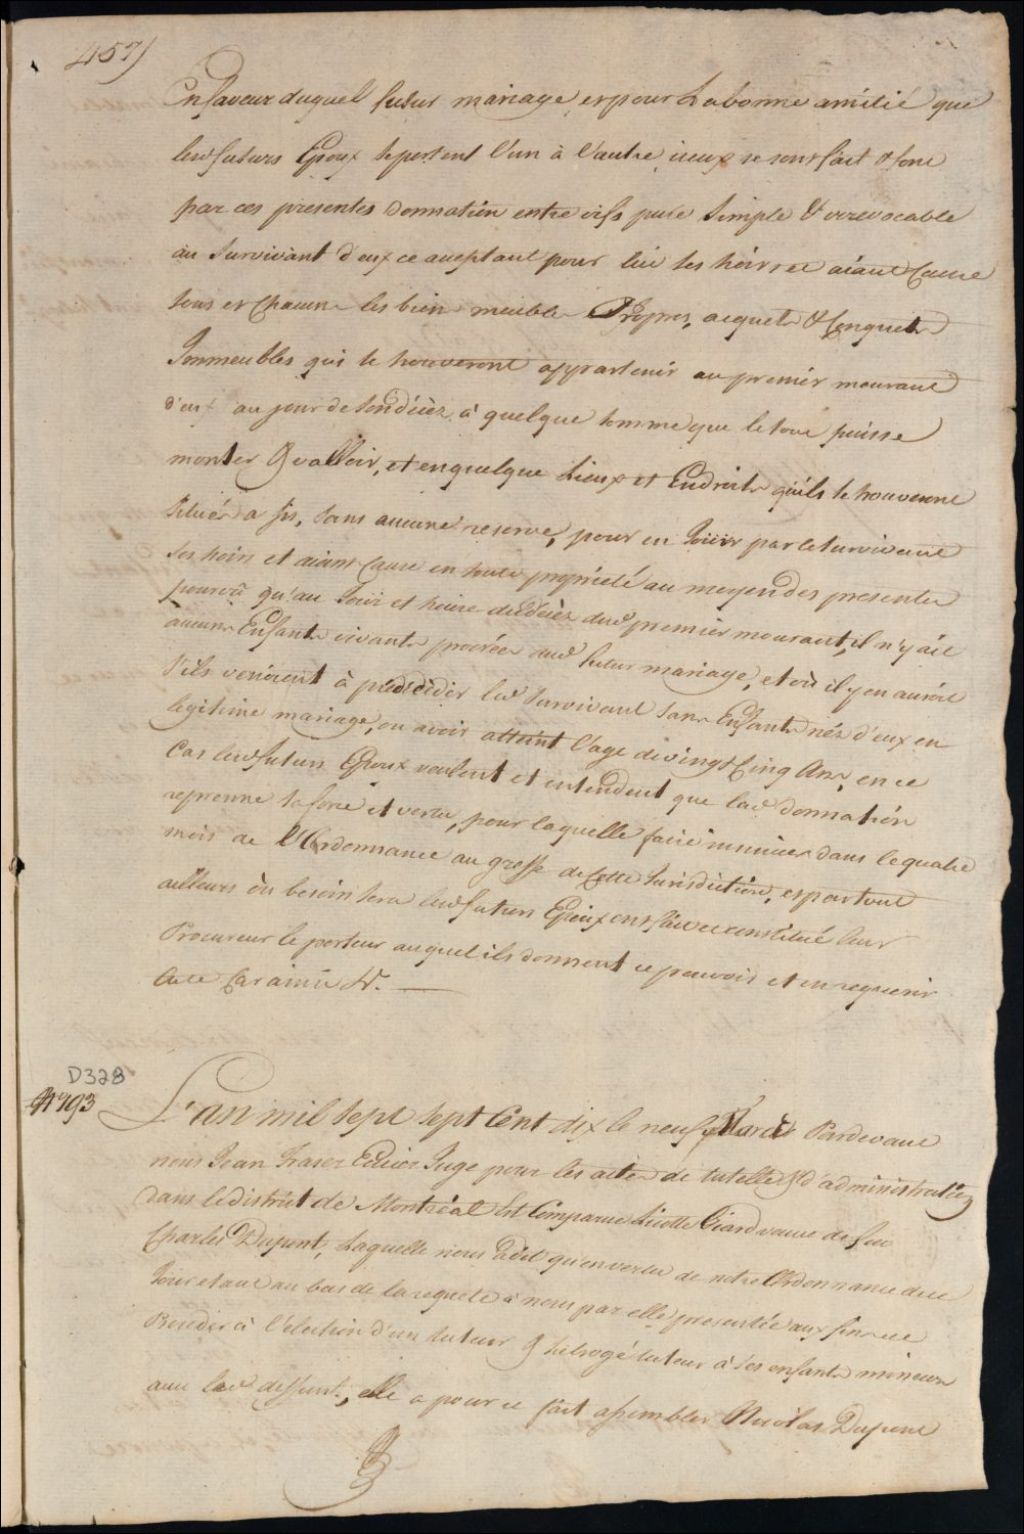 457)
En faveur duquel futur mariage et pour La bonne amitié que
lesd. futurs Epoux se portent l'un à l'autre iceux se sont fait & font
par ces presentes Donnation entre vifs pure Simple & irrevocable
au Survivant d'eux ce acceptant pour lui ses hoirs et aiant Cause
tous et Chacuns les biens meubles Propres, acquets & Conquets
Immeubles qui se trouveront appartenir au premier mourant
d'eux au jour de son décèz à quelque somme que le tout puisse
monter & valloir, et en quelque Lieux et Endroits qu'ils se trouvent
Situés & assis, Sans aucune reserve, pour en Jouir par le survivant
Ses hoirs et aiant Cause en toute propriété au moyen des presentes
pourvû qu'au Jour et heure du décès dud. premier mourant, il n'y ait
aucuns Enfants vivants procréés dud. futur mariage, et où il y en auroit
S'ils venoient à prédécéder led. Survivant Sans Enfants nés d'eux en
legitime mariage, ou avoir atteint l'age de vingt Cinq Ans, en ce
Cas lesd. futurs Epoux veulent et entendent que lad. donnation
reprenne sa force et vertu, pour laquelle faire insinuer dans le quatre
mois de l'Ordonnance au greffe de Cette Jurisdiction, et partout
ailleurs où besoin sera lesd. futurs Epoux ont fait et constitué leur
Procureur le porteur auquel ils donnent ce pouvoir et en requerir
Acte Car ainsi &c.
D328
N° 193
L'an mil sept sept Cent dix le neuf Mars Pardevant
nous Jean Fraser Ecuier Juge pour les actes de tutelle & d'administration
dans le district de Montréal Est Comparue Lisette Giard veuve de feu
Charles Dupont, Laquelle nous a dit qu'en vertu de notre Ordonnance de ce
Jour etant au bas de la requete à nous par elle presentée aux fins de
Proceder à l'election d'un tuteur & subrogé tuteur à ses enfants mineurs
avec led. deffunt, elle a pour ce fait assembler Nicolas Dupont